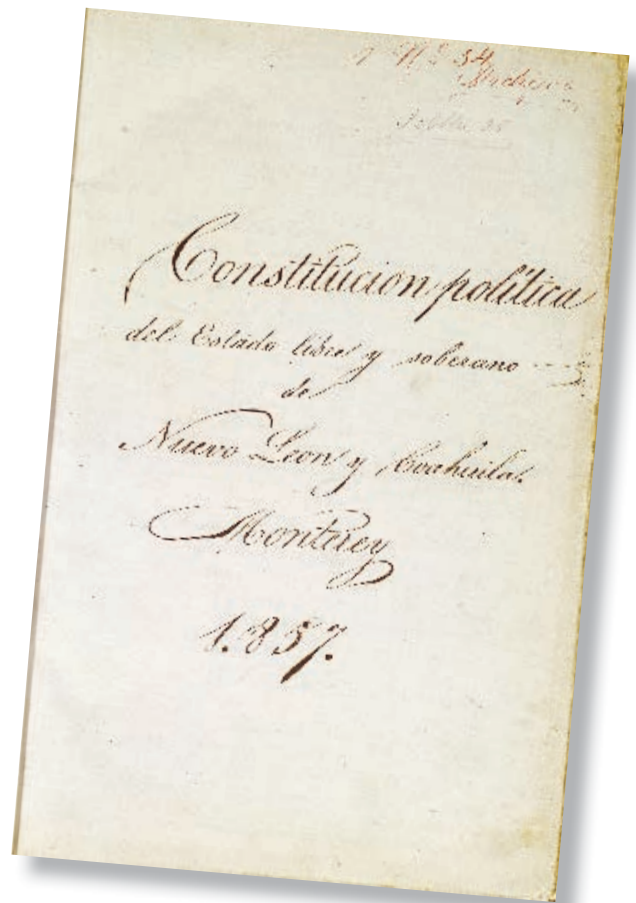 Nº 34
Archivo
Constitucion política
del Estado libre y soberano
de
Nuevo Leon y Coahuila.
Monterey
1.857.